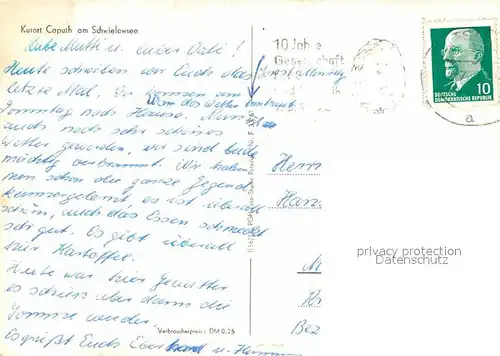 Kurort Caputh am Schwielowsee
Liebe Mutti u. lieber Vati!
Heute schreiben wir Euch das
letzte Mal. Wir kommen am
Wenn das Wetter
Sonntag nach Hause. Nun
auch noch sehr schönes
Wetter geworden, wir sind beide
mächtig verbrannt. Wir haben
nun schon die ganze Gegend
kennengelernt, es ist überall
schön, auch das Essen schmeckt
sehr gut. Es gibt überall
hier Kartoffel.
Heute war hier Gewitter
es schien aber dann die
Sonne wieder.
Es grüßt Euch u.
Verbraucherpreis: DM 0,25
10 Jahre
Gesellschaft
DEUTSCHE
DEMOKRATISCHE REPUBLIK
10
a
Herrn
Harz
M
Kr
Bez
privacy protection
Datenschutz